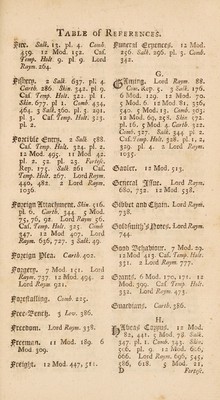 TABLE OF REFERENCES.
Fire. Salk. 13. pl. 4. Comb.
459. 12 Mod. 151. Cas.
Temp. Holt 9. pl. 9. Lord
Raym. 264.
Fishery. 2 Salk. 637. pl. 4.
Carth. 286. Skin. 342. pl. 9.
Cas. Temp. Holt. 322. pl. 1.
Skin. 677. pl. 1. Comb. 434,
464. 3 Salk. 360. pl. 3. 291.
pl. 3. Cas. Temp. Holt. 323.
pl. 2.
Forcible Entry. 2 Salk. 588.
Cas. Temp. Holt. 324. pl. 2.
12 Mod. 495. 11 Mod. 42.
pl. 2. 52. pl. 23. Fortesc.
Rep. 175. Salk. 261. Cas.
Temp. Holt. 267. Lord Raym.
440, 482. 2 Lord Raym.
1036.
Foreign Attachment. Skin. 516.
pl. 6. Carth. 344. 5 Mod.
75, 76, 92. Lord Raym. 56.
Cas. Temp. Holt. 325. Comb.
347. 12 Mod. 407. Lord
Raym. 636, 727. 3 Salk. 49.
Foreign Plea. Carth. 402.
Forgery. 7 Mod. 151. Lord
Raym. 737. 12 Mod. 494. 2
Lord Raym. 921.
Forestalling. Comb. 225.
Free-Bench. 3 Lev. 386.
Freedom. Lord Raym. 338.
Freeman. 11 Mod. 189. 6
Mod. 309.
Freight. 12 Mod. 447, 511.
Funeral Expences. 12 Mod.
256. Salk. 296. pl. 3. Comb.
342.
G.
Gaming. Lord Raym. 88.
Com. Rep. 3. 3 Salk. 176.
6 Mod. 129. 12 Mod. 70.
5 Mod. 6. 12 Mod. 81, 336,
540. 5 Mod. 13. Comb. 303.
12 Mod. 69, 258. Skin. 572.
pl. 16. 5 Mod. 4. Carth. 322.
Comb. 327. Salk. 344. pl. 2.
Cas. Temp. Holt. 328. pl. 1, 2,
329. pl. 4. 2 Lord Raym.
1035.
Gaoler. 12 Mod. 513.
General Issue. Lord Raym.
680, 732. 12 Mod. 338.
Gibbet and Chain. Lord Raym.
738.
Goldsmith's Notes. Lord Raym.
744.
Good Behaviour. 7 Mod. 29.
12 Mod. 413. Cas. Temp. Holt.
331. 2 Lord Raym. 777.
Grants. 6 Mod. 170, 171. 12
Mod. 399. Cas. Temp. Holt.
332. Lord Raym. 473.
Guardians. Carth. 386.
H.
Habeas Corpus. 12 Mod.
82, 441. 5 Mod. 78. Salk.
347. pl. 1. Comb. 343. Skin.
676. 12 Mod. 666, 606,
666. Lord Raym. 696, 545,
586, 618. 5 Mod. 22,
D Fortesc.